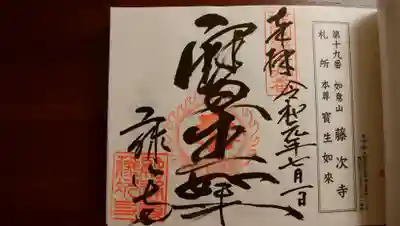 第十九番 如意山 藤次寺
札所 本尊 寳生如來
奉拝 令和元年七月一日
寳生如来
藤次寺